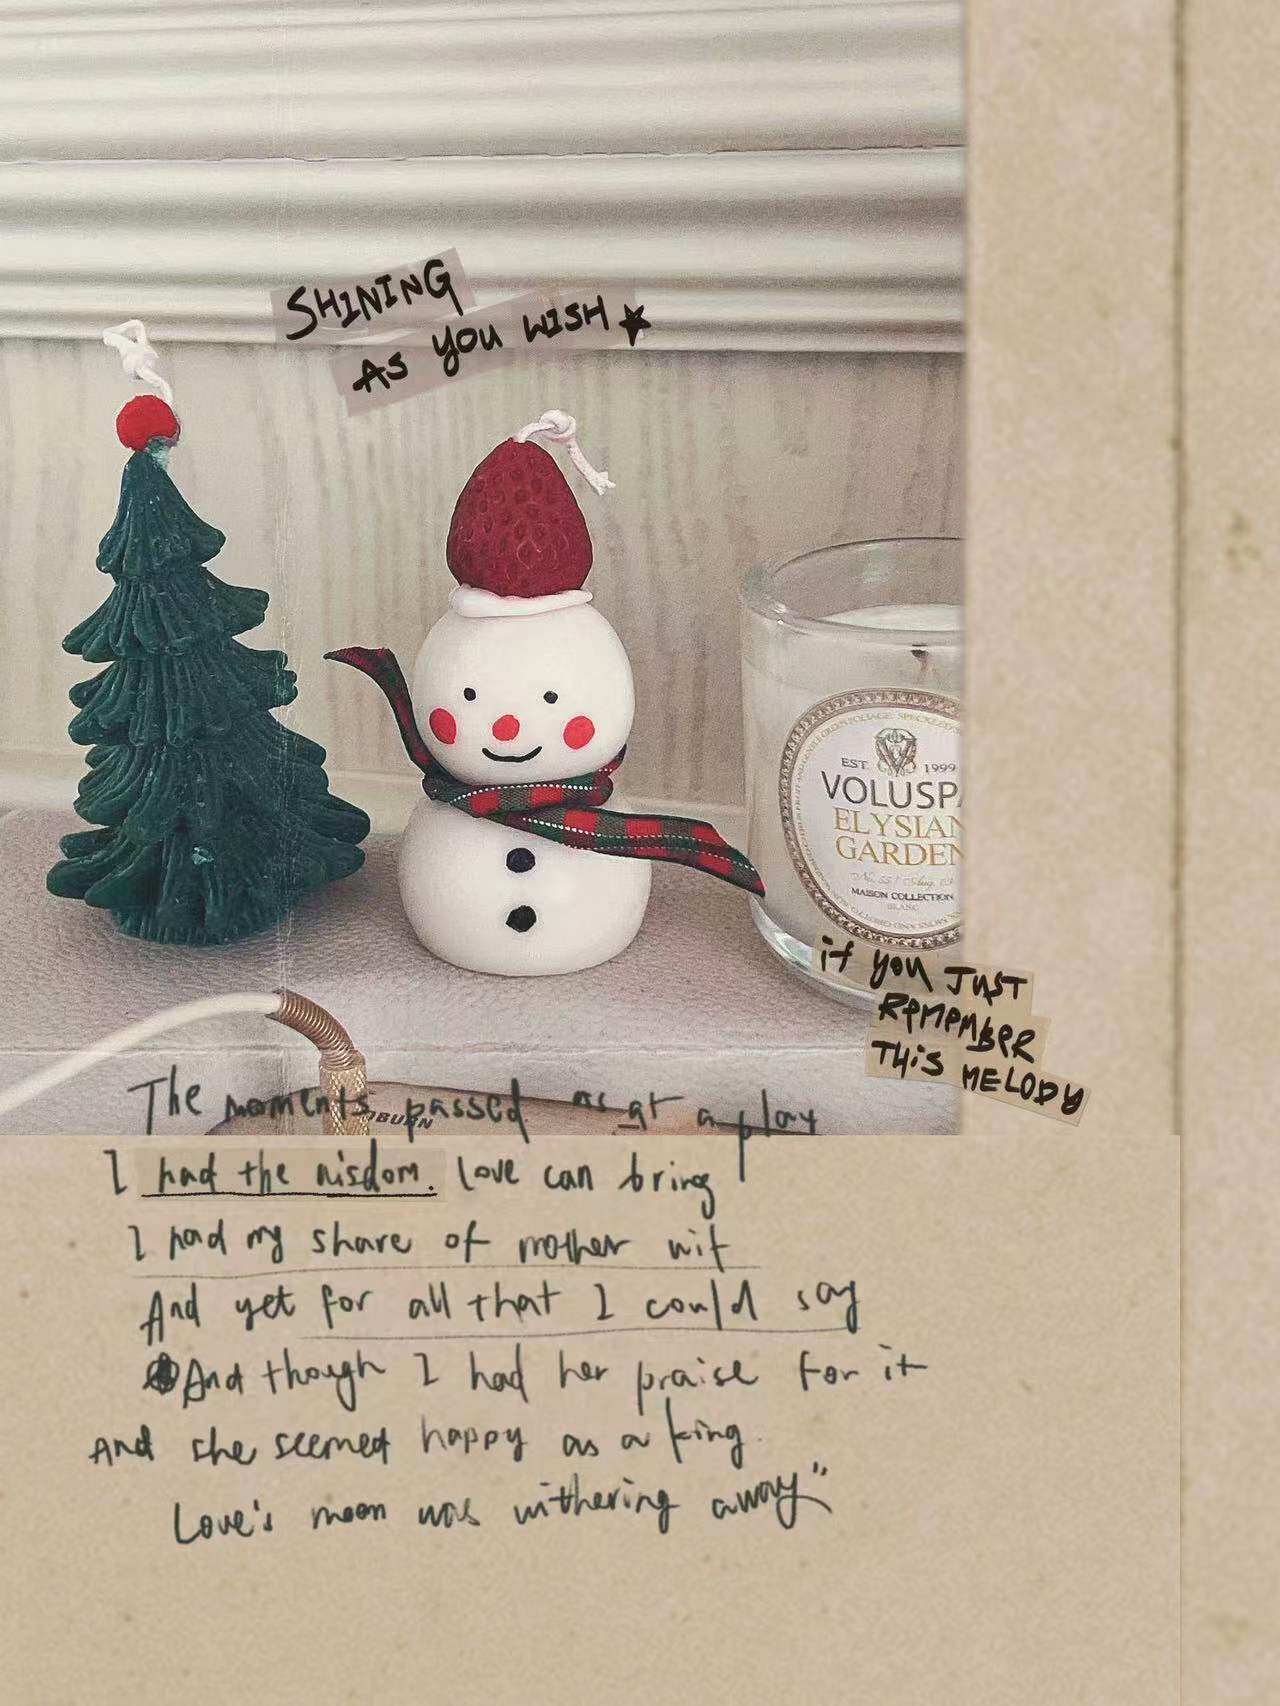 SHINING
AS YOU WISH
EST. 1999
VOLUSPA
ELYSIAN
GARDEN
MAISON COLLECTION
BLANC
if you JUST
REMEMBER
THiS MELODY
The moments passed as at a play
I had the wisdom. Love can bring
I had my share of mother wit
And yet for all that I could say
And though I had her praise for it
And she seemed happy as a king.
Love's moon was withering away"